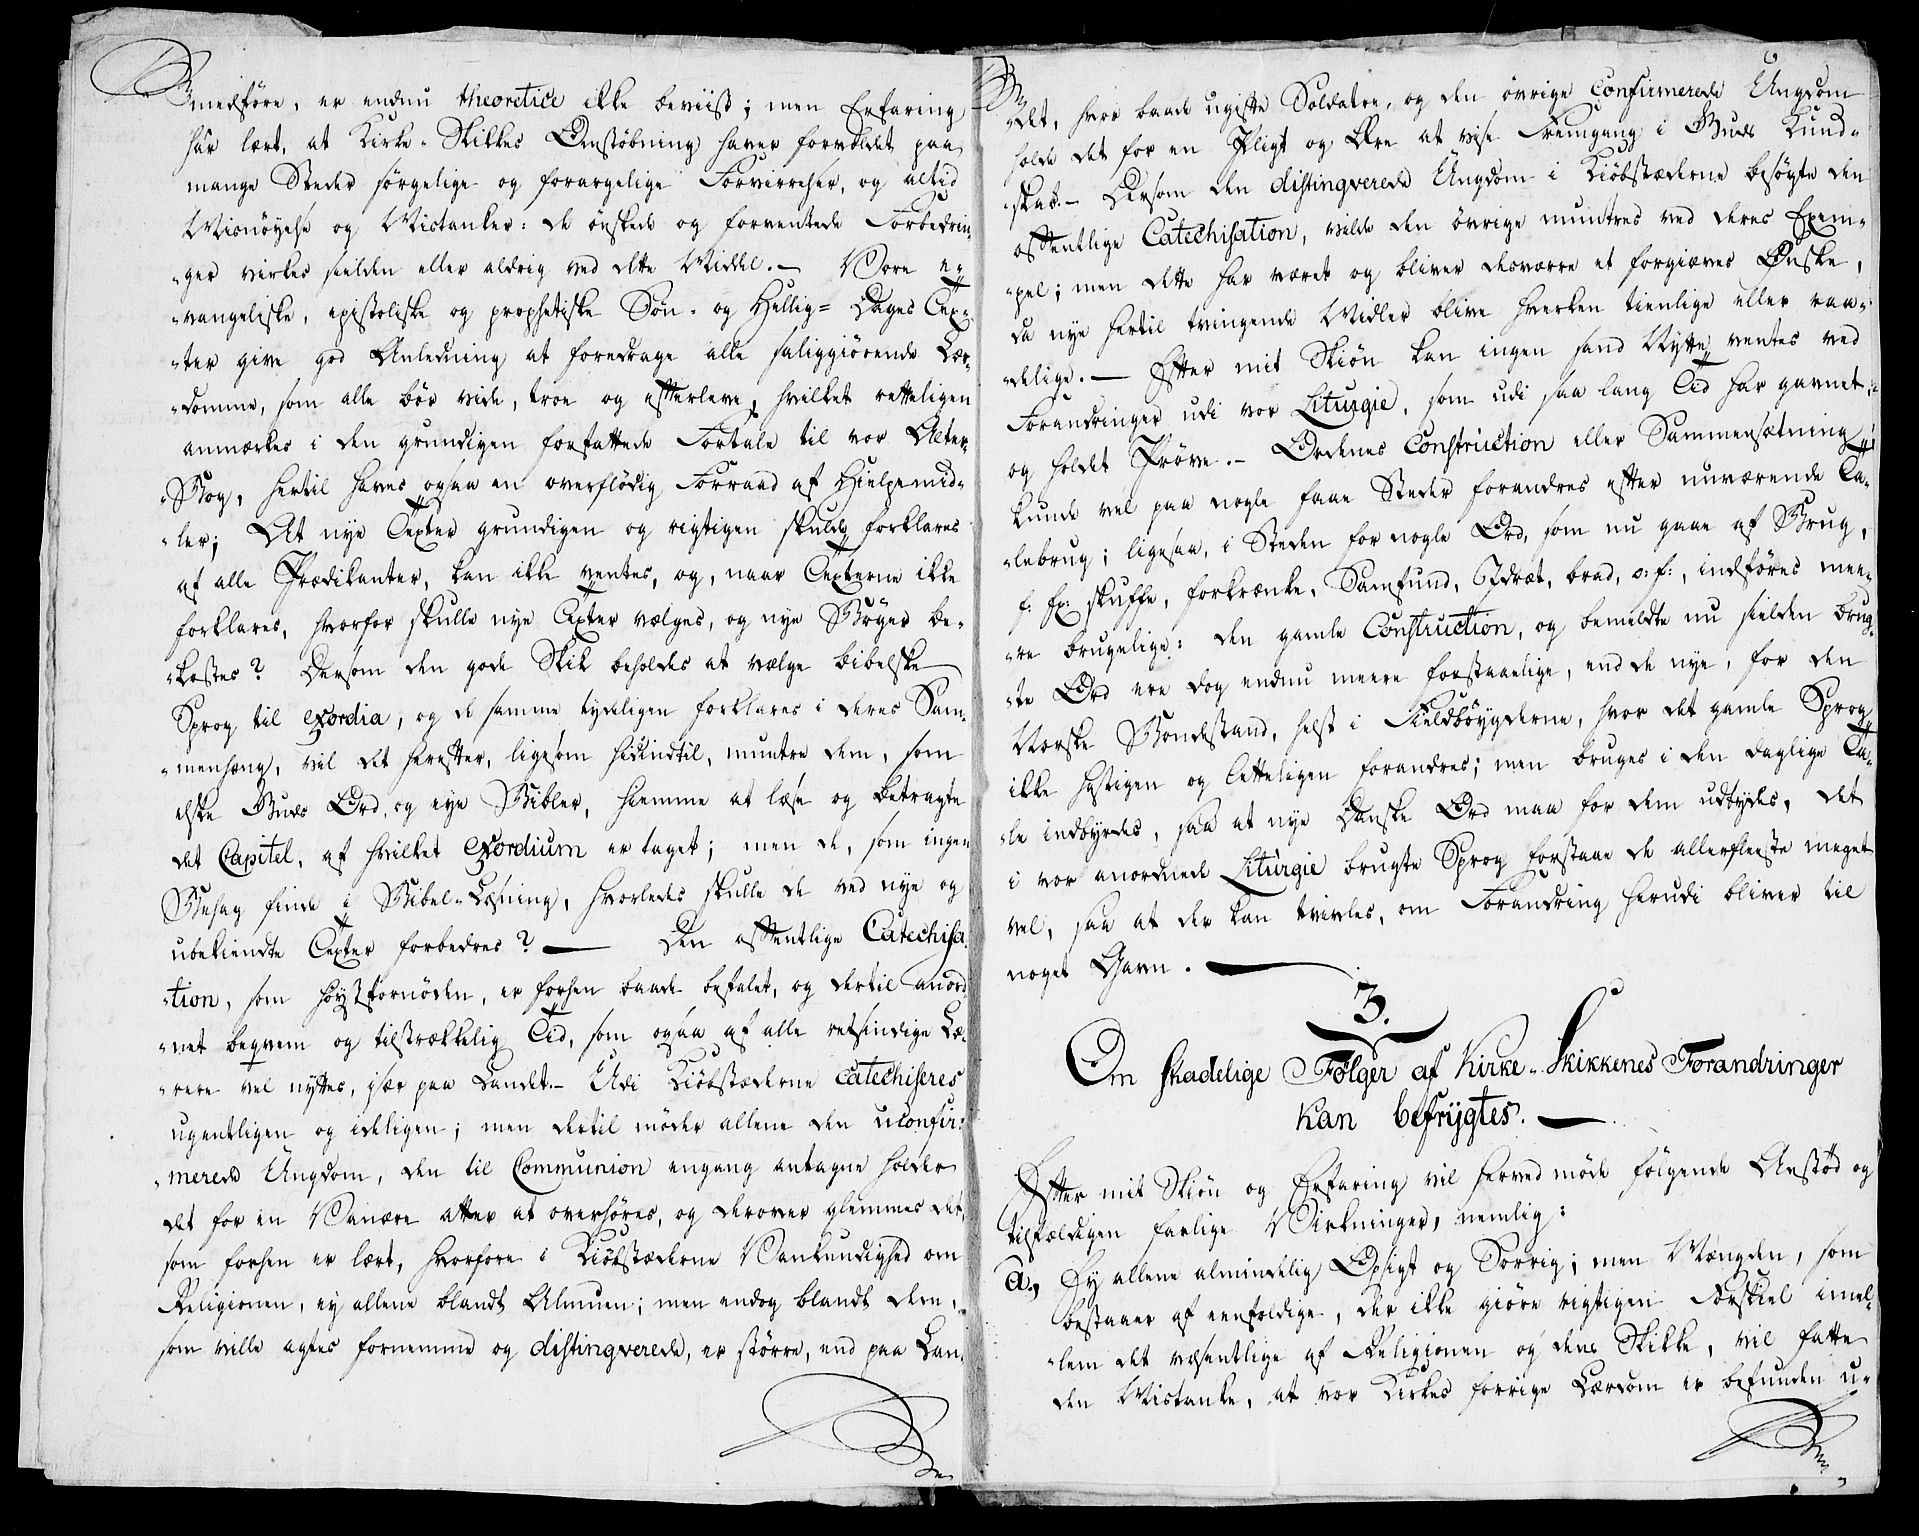 medføre, er endnu theoretice ikke beviist; men Erfaring
har lært, at Kirke-Skikkes Omstøbning haver forvoldet paa
mange Steder sørgelige og forargelige Forvirrelser, og altid
Misnøyelse og Mistanker: de ønskede og forventede Forbedrin-
-ger virkes sielden eller aldrig ved dette Middel. — Vore e-
-vangeliske, epistoliske og prophetiske Søn- og Hellig= Dages Tex-
-ter give god Anledning at foredrage alle saliggiørende Lær-
-domme, som alle bør vide, troe og efterleve, hvilket retteligen
anmærkes i den grundigen forfattede Fortale til vor Alter-
-Bog, hertil haves ogsaa en overflødig Forraad af Hielpemid-
-ler; At nye Texter grundigen og rigtigen skulde forklares
af alle Prædikanter, kan ikke ventes, og, naar Texterne ikke
forklares, hvorfor skulle nye Texter vælges, og nye Bøger be-
-kostes? Dersom den gode Skik beholdes at vælge bibelske
Sprog til exordia, og de samme tydeligen forklares i deres Sam-
-menhæng, vil det herefter, ligesom hidindtil, muntre dem, som
elske Guds Ord, og eye Bibler, hiemme at læse og betragte
det Capitel, af hvilket exordium er taget; men de, som ingen
Behag finde i Bibel-Læsning, hvorledes skulle de ved nye og
ubekiendte Texter forbedres? — Den offentlige Catechisa-
-tion, som høystfornøden, er forhen baade befalet, og dertil anord-
-net beqvem og tilstrækkelig Tid, som ogsaa af alle retsindige Læ-
-rere vel nyttes, især paa Landet. — Udi Kiøbstæderne catechiseres
ugentligen og ideligen; men dertil møder allene den uconfir-
-merede Ungdom, den til Communion engang antagne holder
det for en Vanære atter at overhøres, og derover glemmes det,
som forhen er lært, hvorfore i Kiøbstæderne Vankundighed om
Religionen, ey allene blandt Almuen; men endog blandt dem,
som ville agtes fornemme og distingverede, er større, end paa Lan-
-det, hvor baade ugifte Soldater, og den øvrige Confirmerede Ungdom
holde det for en Pligt og Ære at vise Fremgang i Guds Kund-
-skab. — Dersom den distingverede Ungdom i Kiøbstæderne besøgte den
offentlige Catechisation, vilde den øvrige muntres ved deres Exem-
-pel; men dette har været og bliver desværre et forgiæves Ønske,
da nye hertil tvingende Midler blive hverken tienlige eller raa-
-delige. — Efter mit Skiøn kan ingen sand Nytte ventes ved
Forandringer udi vor Liturgie, som udi saa lang Tid har gavnet,
og holdt Prøve. — Ordenes Construction eller Sammensætning
kunde vel paa nogle faae Steder forandres efter nuværende Ta-
-lebrug; ligesaa, i Steden for nogle Ord, som nu gaae af Brug,
f: Ex: skuffe, forkrænke, Samfund, Idræt, brad, o: f:, indføres mee-
-re brugelige: den gamle Construction, og bemeldte nu sielden brug-
-te Ord ere dog endnu meere forstaaelige, end de nye, for den
Norske Bondestand, helst i Fieldbøygderne, hvor det gamle Sprog
ikke hastigen og letteligen forandres; men bruges i den daglige Ta-
-le indbyrdes, saa at nye Danske Ord maa for dem udtydes, det
i vor anordnede Liturgie brugte Sprog forstaae de allerfleeste meget
vel, saa at der kan tvivles, om Forandring herudi bliver til
noget Gavn. —
3.
Om skadelige Følger af Kirke-Skikkenes Forandringer
kan befrygtes. —
Efter mit Skiøn og Erfaring vil herved møde følgende Anstød og
tilfældigen farlige Virkninger, nemlig:
a., Ey allene almindelig Opsigt og Sorrig; men Mængden, som
bestaaer af eenfoldige, der ikke giøre rigtigen Forskiel imel-
-lem det væsentlige af Religionen og dens Skikke, vil fatte
den Mistanke, at vor Kirkes forrige Lærdom er befunden u-